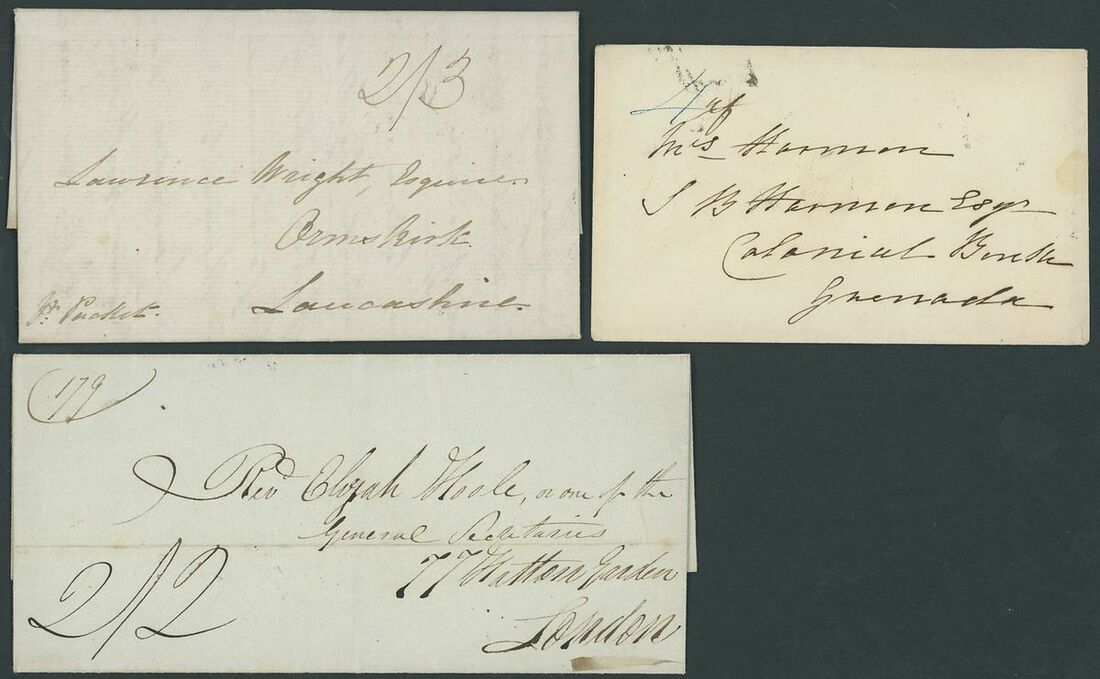 2/3
Lawrence Wright, Esquire
Ormskirk
Lancashire
Pr. Packet.
4
Mrs Harmon
S B Harmon Esqr
Colonial Bank
Grenada
179
Revd Elijah Hoole, or one of the
General Secretaries
77 Hatton Garden
London
2/2